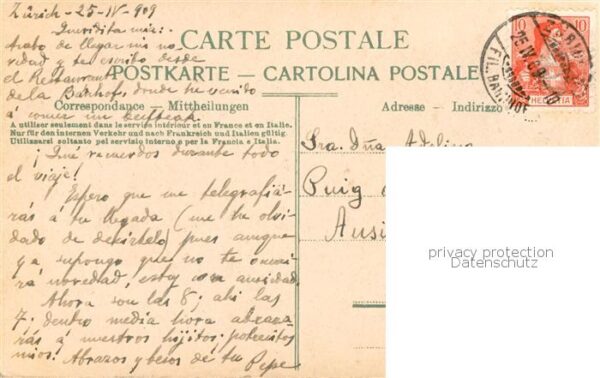 Zürich - 25 - IV - 909
Queridita mia:
Acabo de llegar sin no
vedad y te escribo desde
el Restaurant
de la Bahnhof, donde he venido
á comer un beefteak.
¡Qué recuerdos durante todo
el viaje!
Espero que me telegrafia-
rás á tu llegada (me he olvi-
dado de decirtelo) pues aunque
ya supongo que no te
rá novedad, estoy con ansiedad.
Ahora son las 8; ahi las
7; dentro media hora abraza-
rás á nuestros hijitos: pobrecitos
mios! Abrazos y besos de tu Pepe
CARTE POSTALE
POSTKARTE - CARTOLINA POSTALE
Correspondance - Mittheilungen
Adresse - Indirizzo
A utiliser seulement dans le service intérieur et en France et en Italie.
Nur für den internen Verkehr und nach Frankreich und Italien gültig.
Utilizzarsi soltanto pel servizio interno e per la Francia e Italia.
Sra. Dña Adelina
Puig
Ausi
10 10
HELVETIA
25 IV 09
FIL. BAHNHOF
privacy protection
Datenschutz